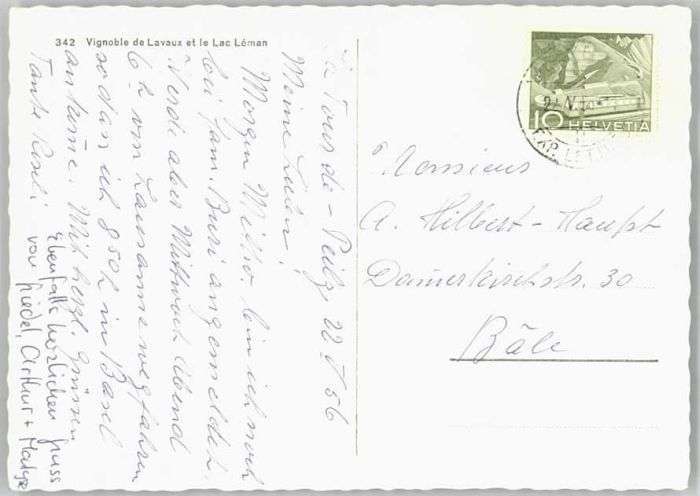 342 Vignoble de Lavaux et le Lac Léman
La Tour-de-Peilz, 22.V.56
Meine Lieben!
Morgen Mittw. bin ich noch
bei Fam. Buri angemeldet.
Werde aber Mittwoch Abend
6 h von Lausanne wegfahren
sodass ich 850 h in Basel
ankäme. Mit herzl. Grüssen
Tante Rosli
Ebenfalls herzlichen Gruss
von Friedel, Arthur +
10 HELVETIA
Monsieur
A. Hilbert-Haupt
Dammerkirchstr. 30
Bâle